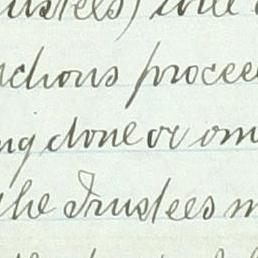 ustees) will
ctions procee
ng done or om
the Trustees m